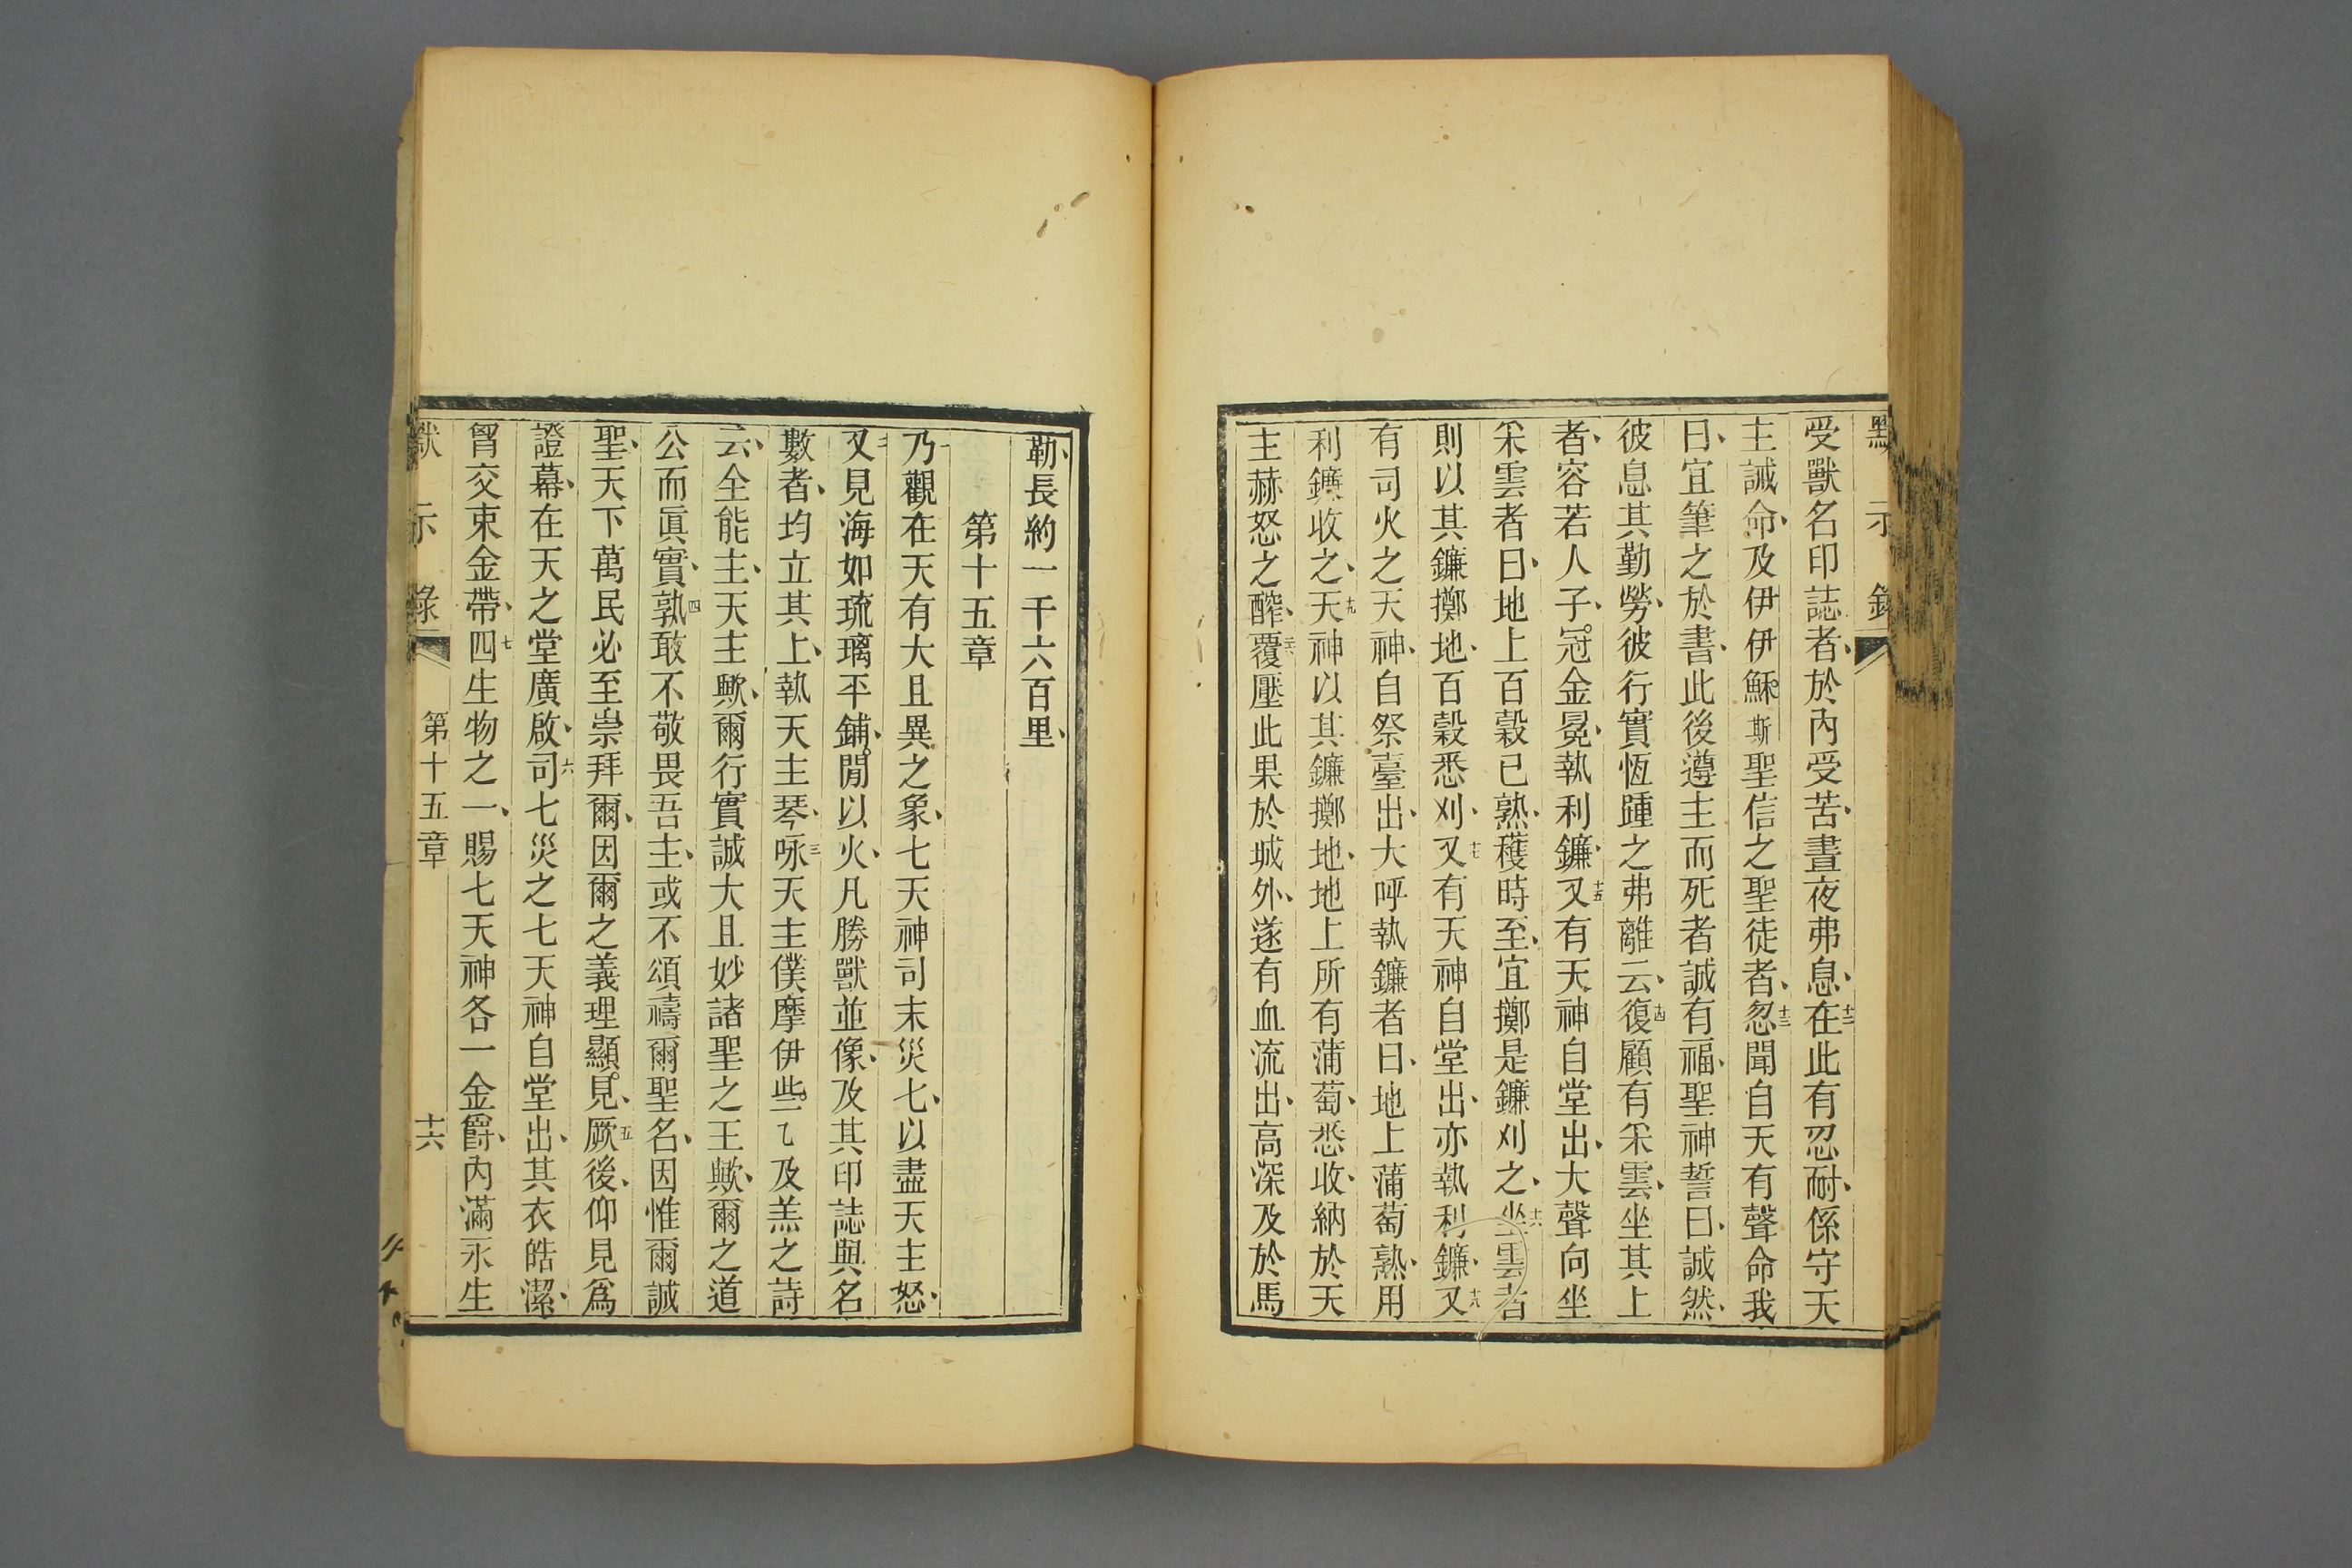 默示錄
受獸名印誌者、於內受苦、晝夜弗息、十二在此有忍耐、係守天
主誡命、及伊伊穌。斯聖信之聖徒者、十三忽聞自天有聲命我
曰、宜筆之於書、此後遵主而死者誠有福、聖神誓曰、誠然、
彼息其勤勞、彼行實恆踵之弗離云、十四復顧有采雲、坐其上
者、容若人子。冠金冕、執利鐮、十五又有天神自堂出、大聲向坐
采雲者曰、地上百穀已熟、穫時至、宜擲是鐮刈之、十六坐雲者
則以其鐮擲地、百穀悉刈、十七又有天神自堂出、亦執利鐮、十八又
有司火之天神、自祭臺出、大呼執鐮者曰、地上蒲萄熟、用
利鐮收之、十九天神以其鐮擲地、地上所有蒲萄、悉收、納於天
主赫怒之醡、二十覆壓此果於城外、遂有血流出、高深及於馬
勒、長約一千六百里、
第十五章
一乃觀在天有大且異之象、七天神司末災七、以盡天主怒、
二又見海如琉璃平鋪。閒以火、凡勝獸並像、及其印誌與名
數者、均立其上、執天主琴、三咏天主僕摩伊些。乙及羔之詩
云、全能主、天主歟、爾行實誠大且妙諸聖之王歟、爾之道
公而眞實、四孰敢不敬畏吾主、或不頌禱爾聖名、因惟爾誠
聖、天下萬民必至崇拜爾、因爾之義理顯。見、五厥後、仰見爲
證幕、在天之堂廣啟、六司七災之七天神自堂出、其衣皓潔、
胷交束金帶、七四生物之一、賜七天神各一金爵、內滿永生
默示錄 第十五章 十六